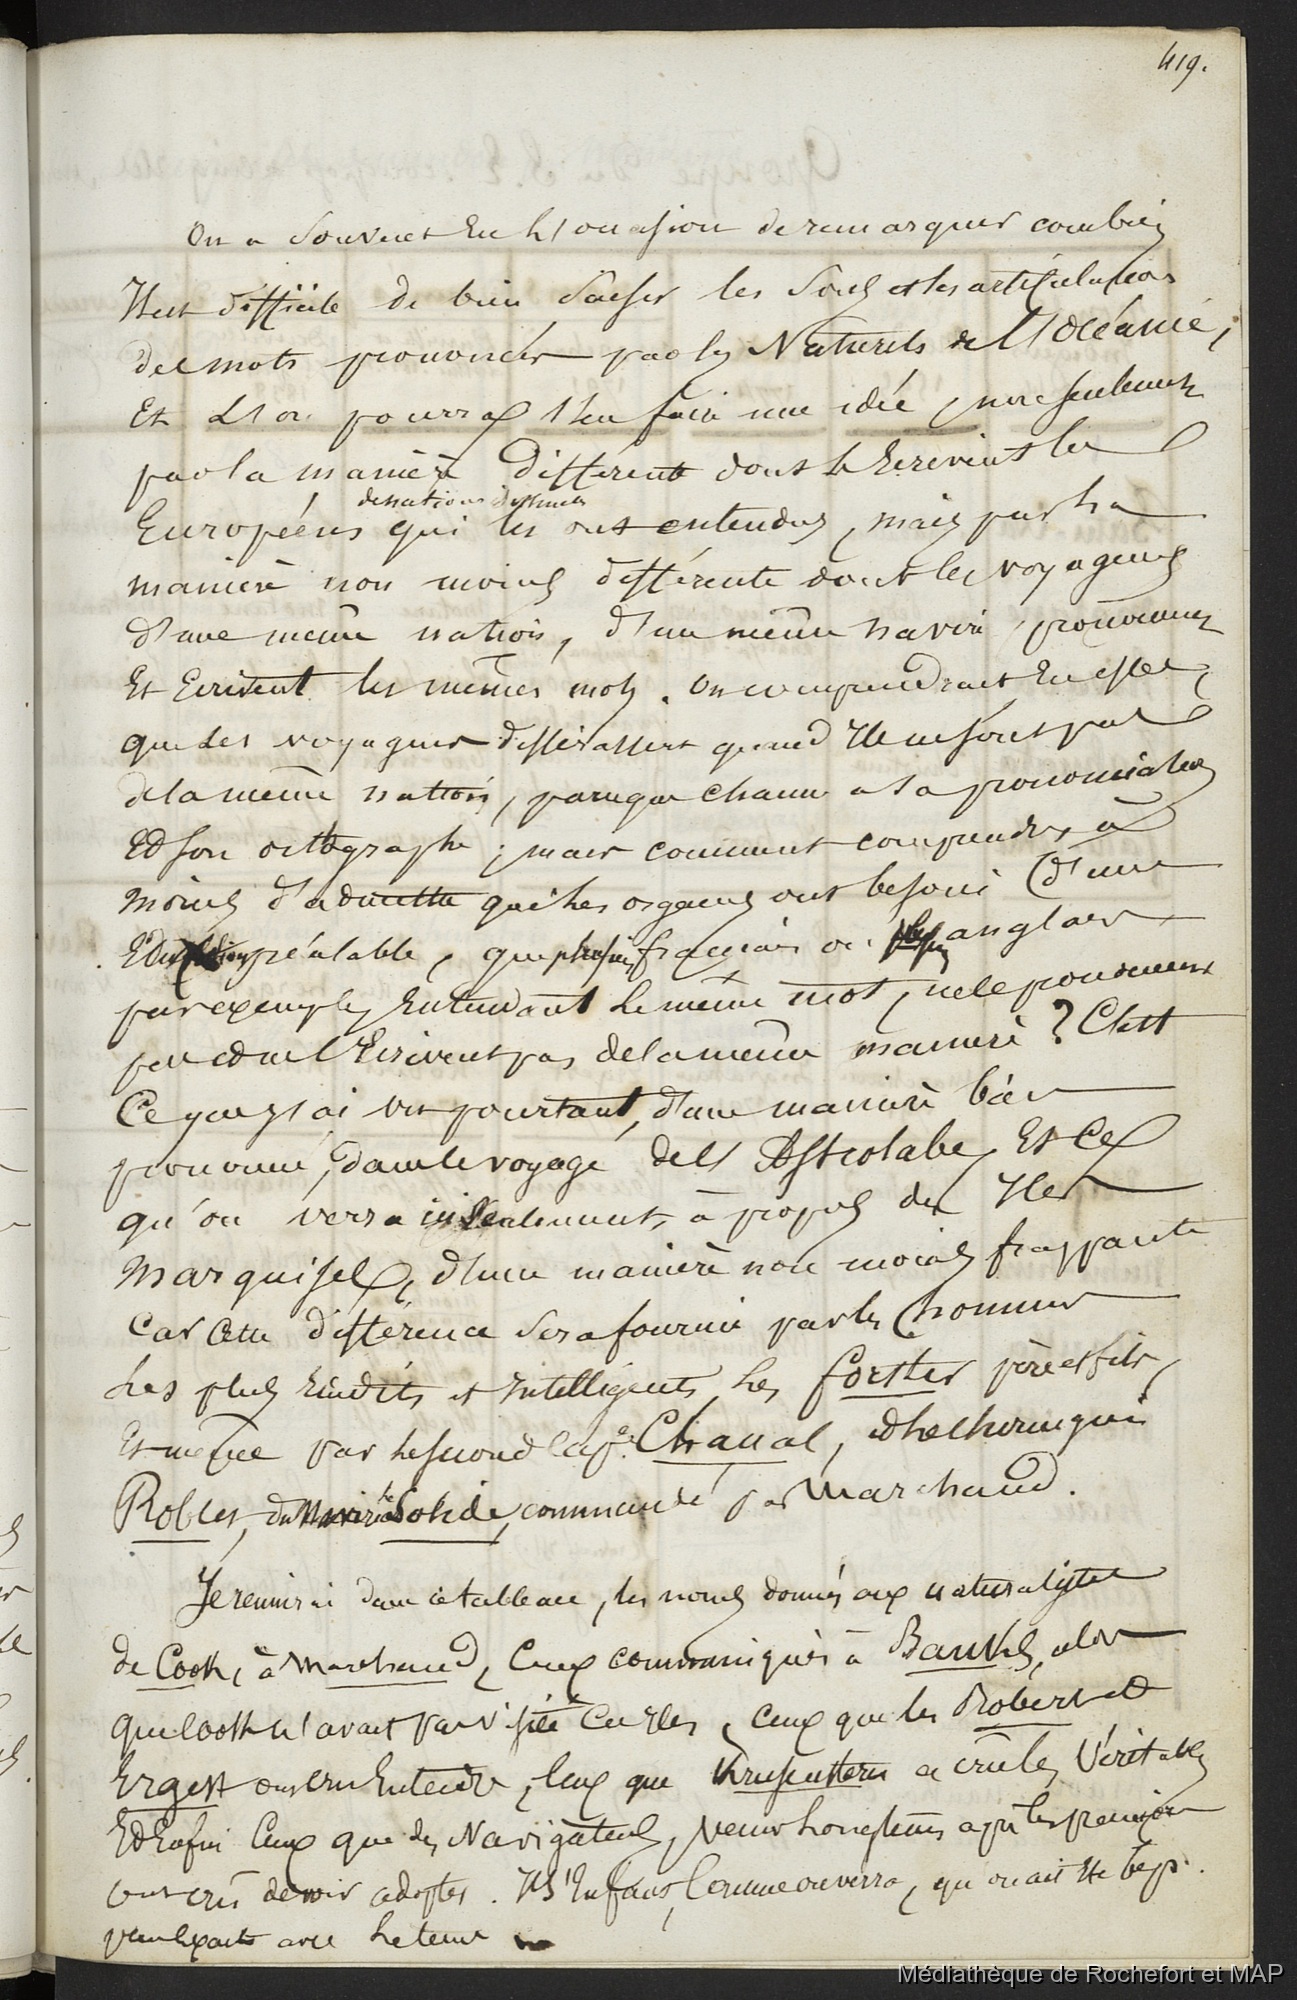 419.
On a souvent eu l'occasion de remarquer combien
il est difficile de bien saisir les sons et les articulations
des mots prononcés par les Naturels de l'Océanie,
Et l'on pourra s'en faire une idée, non seulement
par la manière différente dont les Ecrivent les
de nations diverses
Européens qui les ont entendus, mais par la
manière non moins différente dont les voyageurs
d'une même nation, d'un même navire, prononcent
Et Ecrivent les mêmes mots. On comprendrait En effet,
que des voyageurs différassent quand Ils ne sont pas
de la même nation, parceque chacun a sa prononciation
Ed son orthographe; mais comment comprendre, à
moins d'admettre que les organes ont besoin d'une
Education préalable, que plusieurs français ou plusieurs anglais
par exemple, Entendant le même mot, ne le prononcent
pas et ne l'Ecrivent pas de la même manière? C'est
Ce que j'ai vu pourtant, d'une manière bien
prononcée, dans le voyage de l'Astrolabe, Et ce
qu'on verra ici seulement, à propos des Iles
Marquises, d'une manière non moins frappante
Car cette différence sera fournie par les hommes
Les plus Erudits et Intelligents, les Forster père et fils,
Et même par le second Cape Chanal, et le chirurgien
Roblet, du Navire le Solide, commandé par Marchand.
Je réunirai dans ce tableau, les noms donnés aux naturalistes
de Cook, à Marchand, Ceux communiqués à Banks, alors
que Cook n'avait pas visité ces Iles, ceux que les Roberts et
Ergest ont cru Entendre, Ceux que Krusenstern a crus les Véritables
Ed Enfin Ceux que des Navigateurs, venus longtems après les premiers
ont cru devoir adopter. Il s'En faut, Comme on verra, qu'on ait Eté bep.
plus Exact avec le tems
Médiathèque de Rochefort et MAP